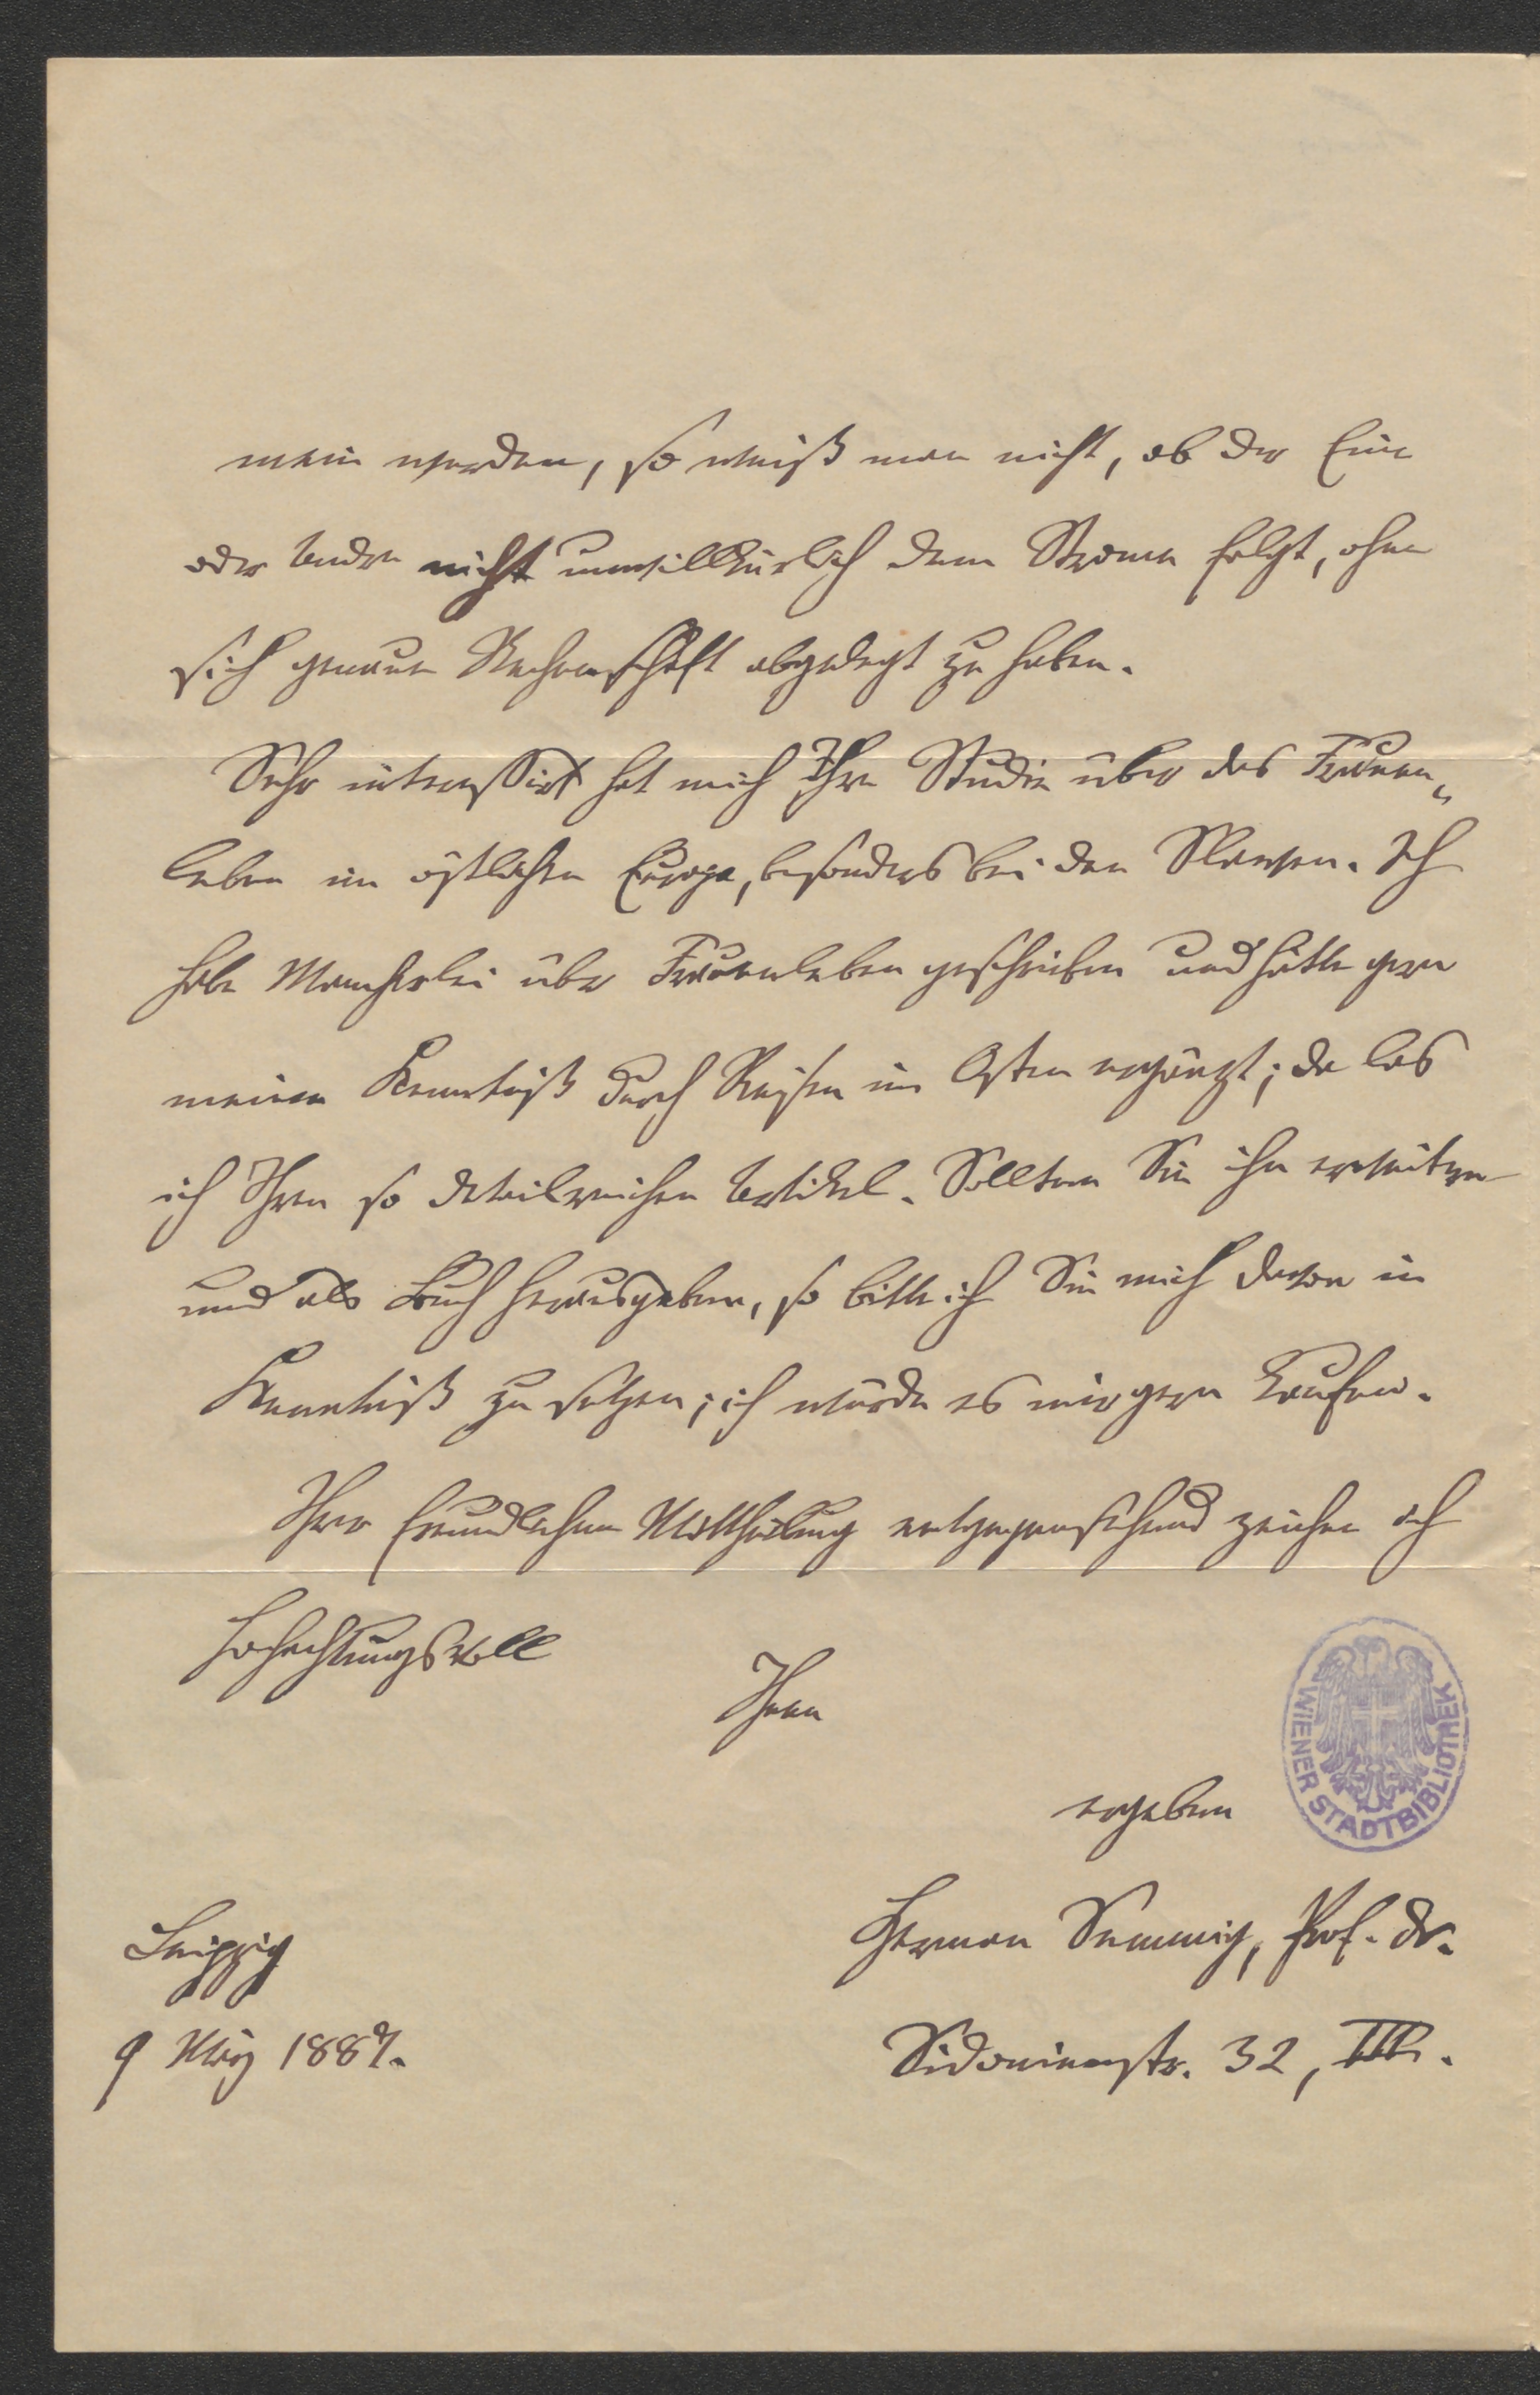 mein werden, so weiß man nicht, ob der Eine
oder Andre nicht unwillkürlich dem Strome folgt, ohne
sich genaue Rechenschaft abgelegt zu haben.
Sehr interessirt hat mich Ihre Studie über das Frauen„
leben im östlichen Europa, besonders bei den Slawen. Ich
habe Mancherlei über Frauenleben geschrieben und hätte gern
meine Kenntniß durch Reisen im Osten ergänzt; da las
ich Ihren so detailreichen Artikel. Sollten Sie ihn erweitern
und als Buch herausgeben, so bitte ich Sie mich davon in
Kenntniß zu setzen; ich würde es mir gern kaufen.
Ihrer freundlichen Mittheilung entgegensehend zeichne ich
hochachtungsvoll
Ihnen
ergeben
WIENER STADTBIBLIOTHEK
Herman Semmig, Prof. Dr.
Leipzig
Sidonienstr. 32, III.
9 März 1887.